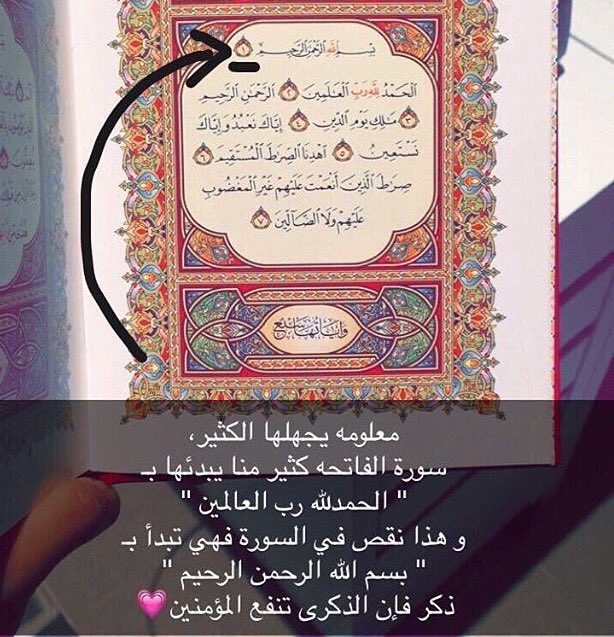 بِسْمِ اللَّهِ الرَّحْمَٰنِ الرَّحِيمِ ١
الْحَمْدُ لِلَّهِ رَبِّ الْعَالَمِينَ ٢ الرَّحْمَٰنِ الرَّحِيمِ
٣ مَالِكِ يَوْمِ الدِّينِ ٤ إِيَّاكَ نَعْبُدُ وَإِيَّاكَ
نَسْتَعِينُ ٥ اهْدِنَا الصِّرَاطَ الْمُسْتَقِيمَ ٦
صِرَاطَ الَّذِينَ أَنْعَمْتَ عَلَيْهِمْ غَيْرِ الْمَغْضُوبِ
عَلَيْهِمْ وَلَا الضَّالِّينَ ٧
وآياتها سبع
معلومه يجهلها الكثير،
سورة الفاتحه كثير منا يبدئها بـ
" الحمدلله رب العالمين "
و هذا نقص في السورة فهي تبدأ بـ
" بسم الله الرحمن الرحيم "
ذكر فإن الذكرى تنفع المؤمنين💗